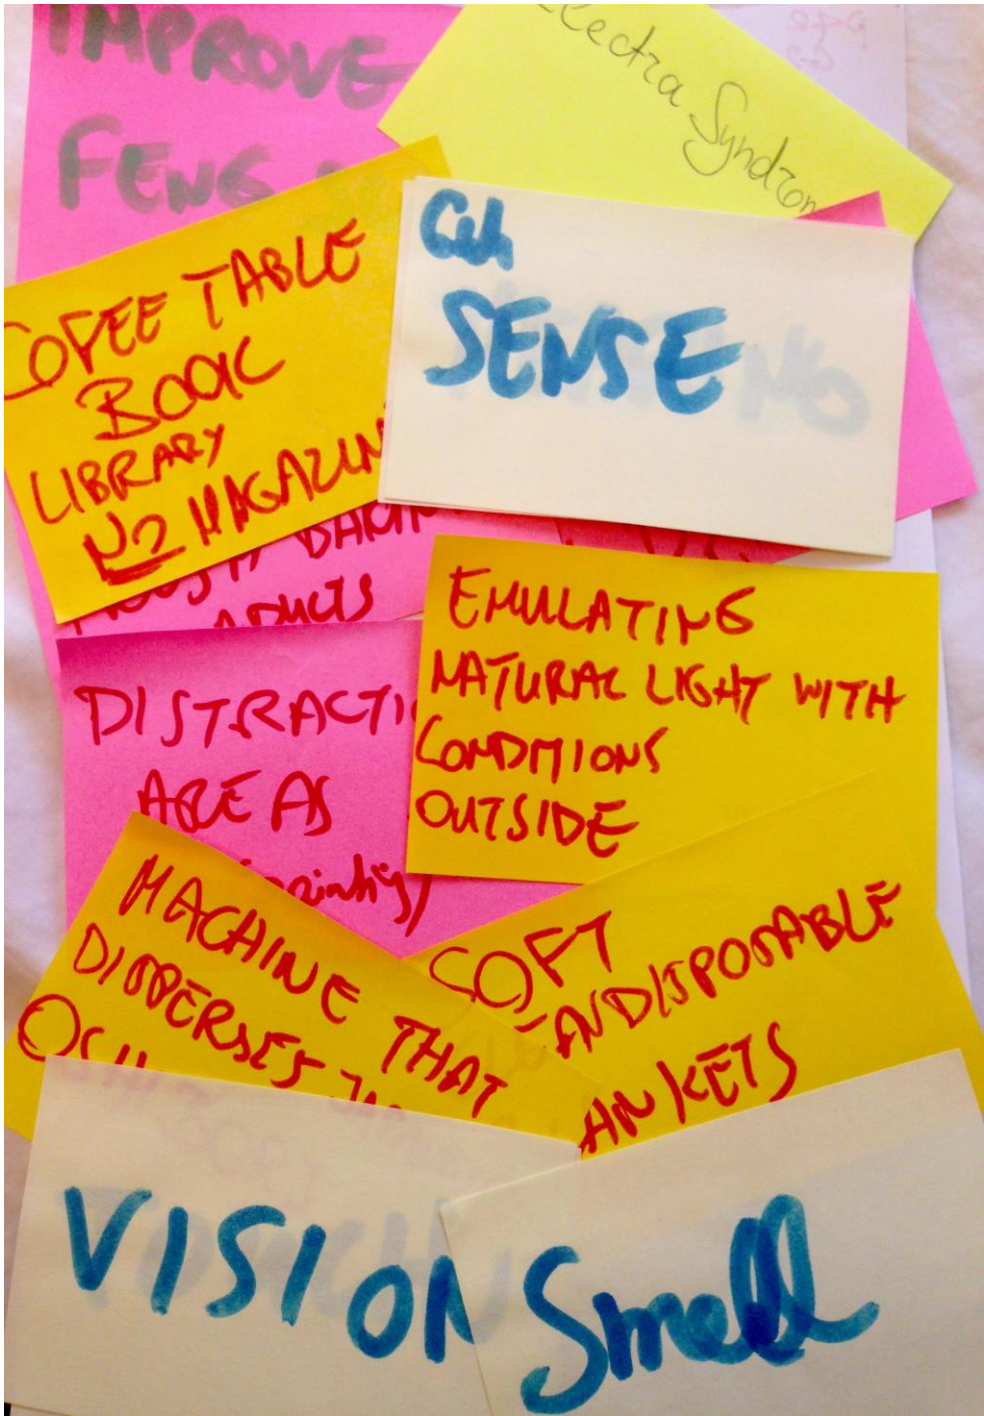 IMPROVE
FENG
lectra Syndrom
COFEE TABLE
BOOK
LIBRARY
NO MAGAZIN
6th
SENSE
ADULTS
EMULATING
NATURAL LIGHT WITH
CONDITIONS
OUTSIDE
DISTRACTI
AREAS
MACHINE THAT
DISPERSES
SOFT
ANDISPOSABLE
ANKETS
VISION
Smell